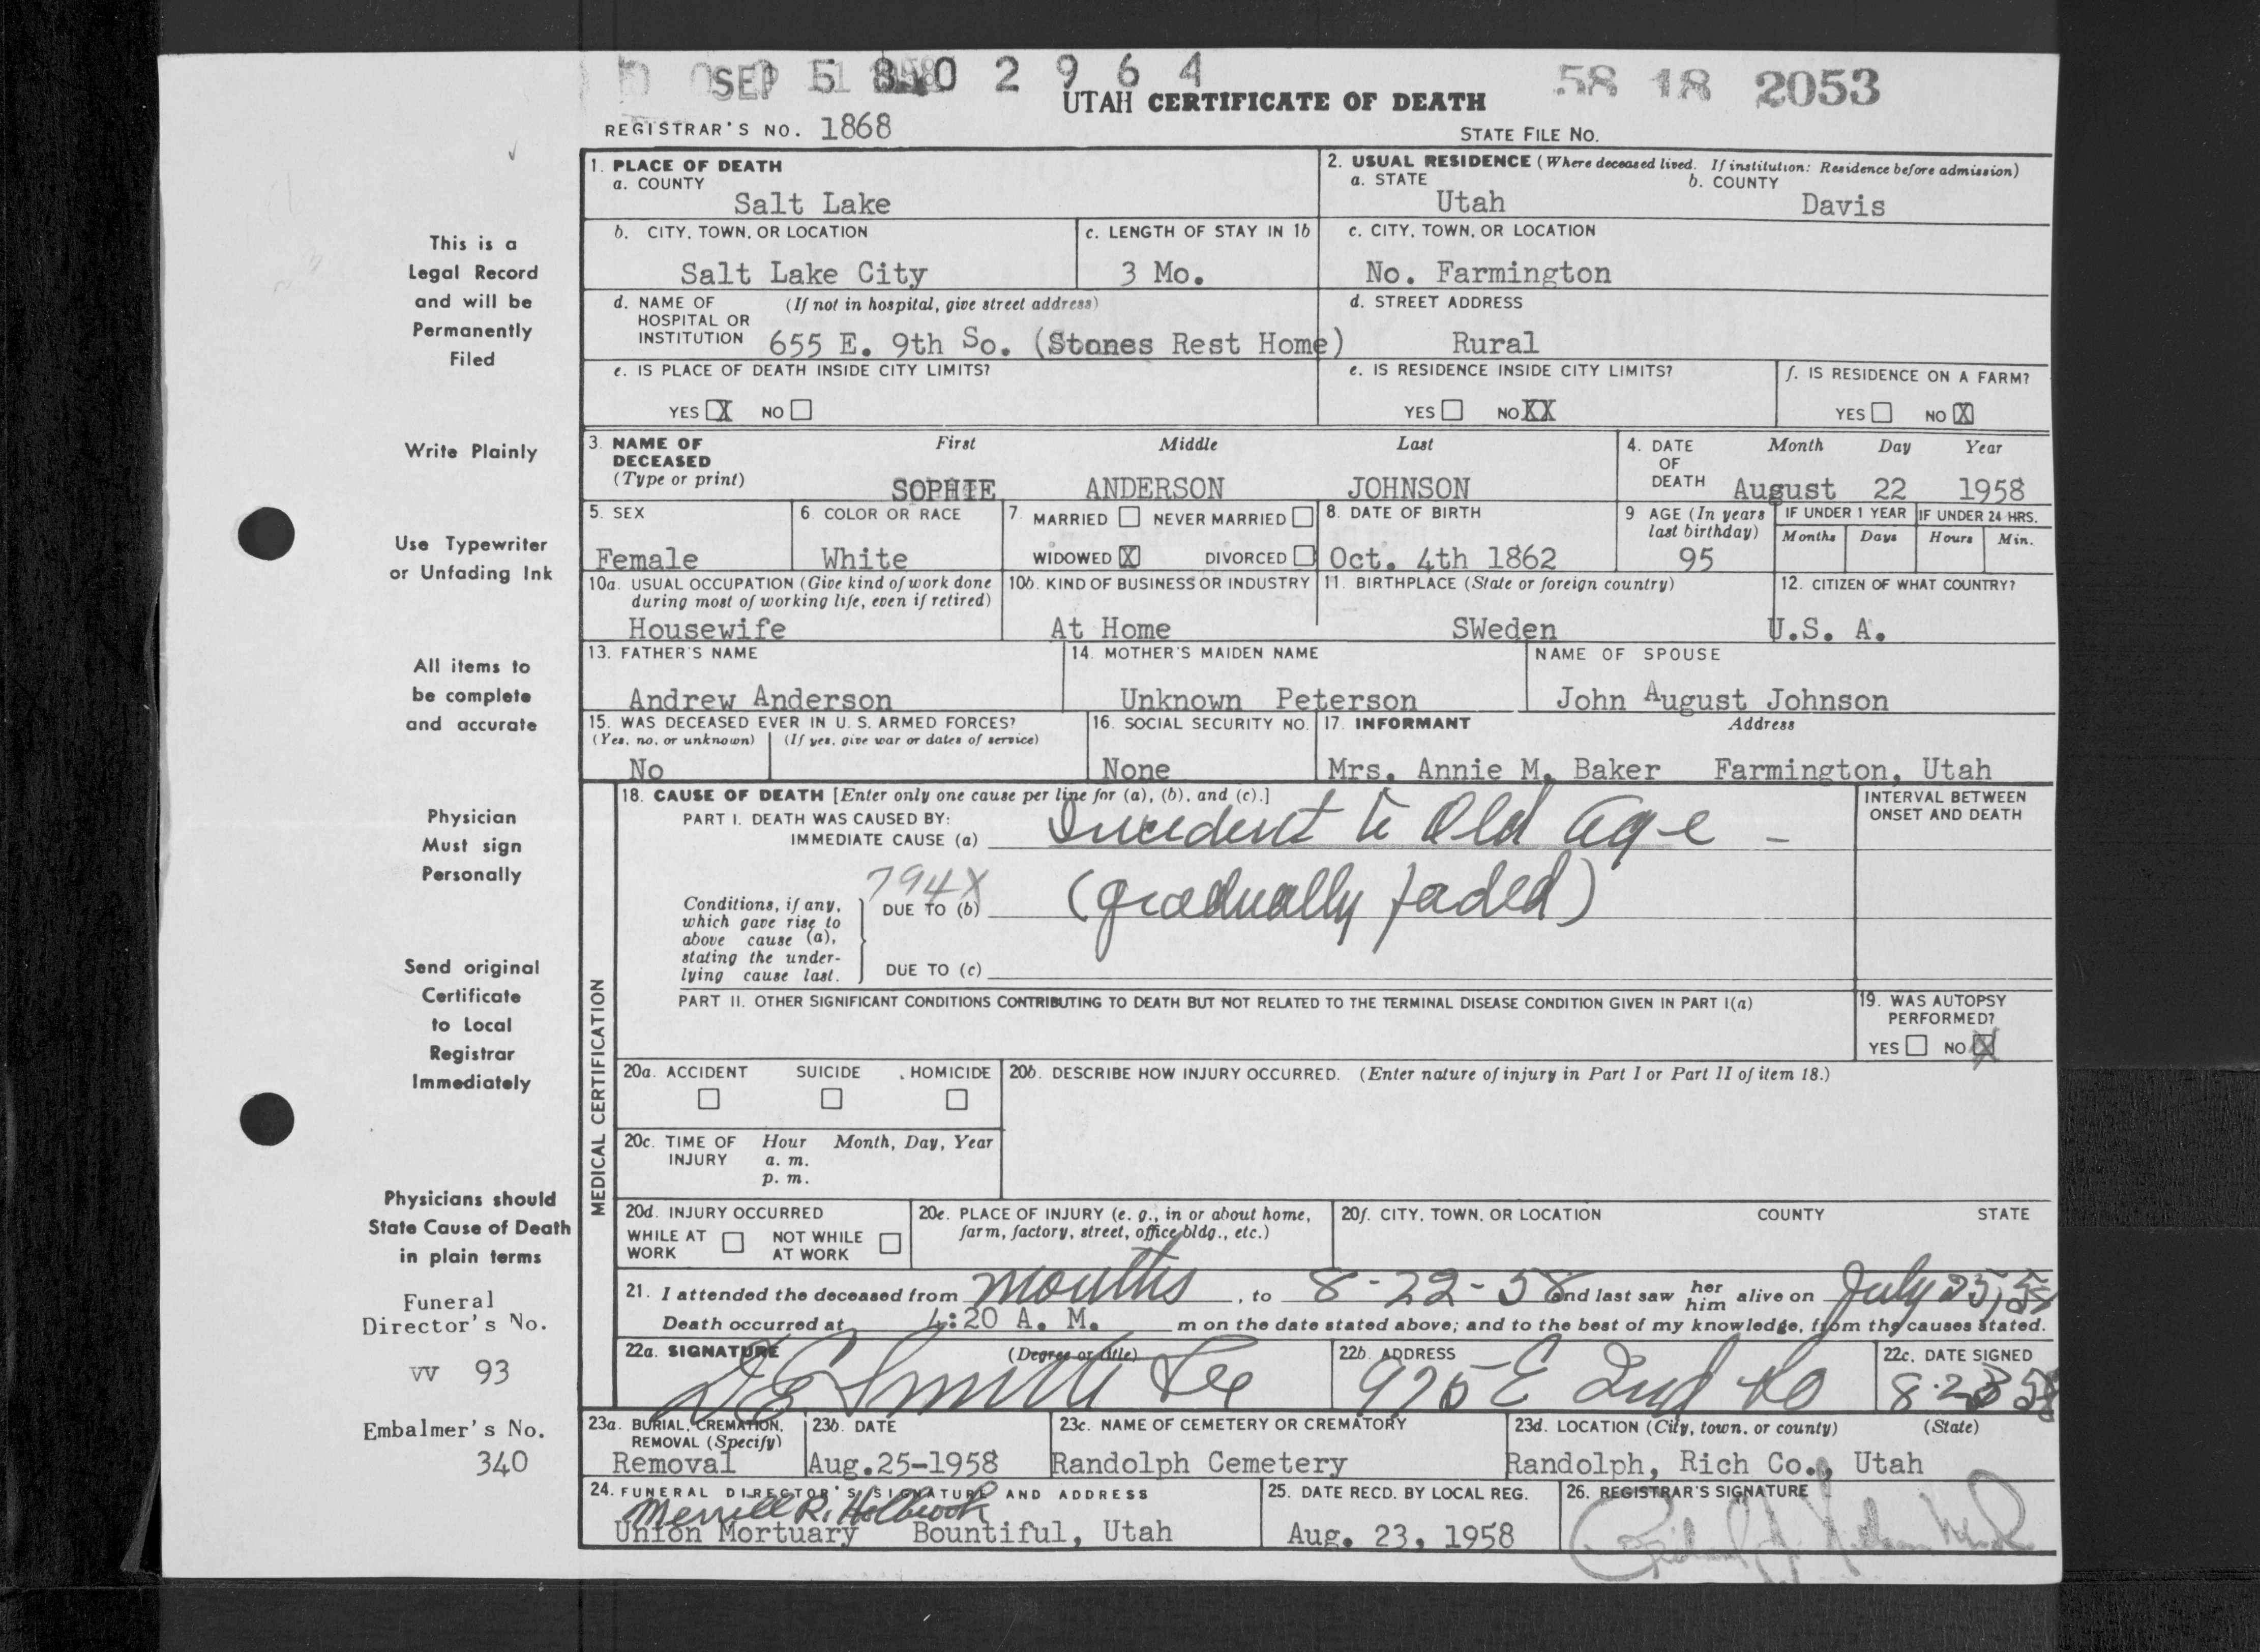 SEP 5 8 0 2 9 6 4
58 18 2053
UTAH CERTIFICATE OF DEATH
REGISTRAR'S NO. 1868
STATE FILE NO.
This is a
Legal Record
and will be
Permanently
Filed
Write Plainly
Use Typewriter
or Unfading Ink
All items to
be complete
and accurate
Physician
Must sign
Personally
Send original
Certificate
to Local
Registrar
Immediately
Physicians should
State Cause of Death
in plain terms
Funeral
Director's No.
VV 93
Embalmer's No.
340
1. PLACE OF DEATH
a. COUNTY
Salt Lake
2. USUAL RESIDENCE (Where deceased lived. If institution: Residence before admission)
a. STATE b. COUNTY
Utah Davis
b. CITY, TOWN, OR LOCATION
Salt Lake City
c. LENGTH OF STAY IN 1b
3 Mo.
c. CITY, TOWN, OR LOCATION
No. Farmington
d. NAME OF (If not in hospital, give street address)
HOSPITAL OR
INSTITUTION 655 E. 9th So. (Stones Rest Home)
d. STREET ADDRESS
Rural
e. IS PLACE OF DEATH INSIDE CITY LIMITS?
YES X NO
e. IS RESIDENCE INSIDE CITY LIMITS?
YES NO XX
f. IS RESIDENCE ON A FARM?
YES NO X
3. NAME OF First Middle Last
DECEASED
(Type or print)
SOPHIE ANDERSON JOHNSON
4. DATE Month Day Year
OF
DEATH August 22 1958
5. SEX
Female
6. COLOR OR RACE
White
7. MARRIED NEVER MARRIED
WIDOWED X DIVORCED
8. DATE OF BIRTH
Oct. 4th 1862
9 AGE (In years
last birthday)
95
IF UNDER 1 YEAR IF UNDER 24 HRS.
Months Days Hours Min.
10a. USUAL OCCUPATION (Give kind of work done
during most of working life, even if retired)
Housewife
10b. KIND OF BUSINESS OR INDUSTRY
At Home
11. BIRTHPLACE (State or foreign country)
SWeden
12. CITIZEN OF WHAT COUNTRY?
U.S. A.
13. FATHER'S NAME
Andrew Anderson
14. MOTHER'S MAIDEN NAME
Unknown Peterson
NAME OF SPOUSE
John August Johnson
15. WAS DECEASED EVER IN U. S. ARMED FORCES?
(Yes, no, or unknown) (If yes, give war or dates of service)
No
16. SOCIAL SECURITY NO.
None
17. INFORMANT Address
Mrs. Annie M. Baker Farmington, Utah
MEDICAL CERTIFICATION
18. CAUSE OF DEATH [Enter only one cause per line for (a), (b), and (c).]
PART I. DEATH WAS CAUSED BY:
IMMEDIATE CAUSE (a) Incident to Old age -
INTERVAL BETWEEN
ONSET AND DEATH
794X
Conditions, if any,
which gave rise to
above cause (a),
stating the under-
lying cause last.
DUE TO (b) (gradually faded)
DUE TO (c)
PART II. OTHER SIGNIFICANT CONDITIONS CONTRIBUTING TO DEATH BUT NOT RELATED TO THE TERMINAL DISEASE CONDITION GIVEN IN PART I(a)
19. WAS AUTOPSY
PERFORMED?
YES NO X
20a. ACCIDENT SUICIDE HOMICIDE
20b. DESCRIBE HOW INJURY OCCURRED. (Enter nature of injury in Part I or Part II of item 18.)
20c. TIME OF Hour Month, Day, Year
INJURY a. m.
p. m.
20d. INJURY OCCURRED
WHILE AT NOT WHILE
WORK AT WORK
20e. PLACE OF INJURY (e. g., in or about home,
farm, factory, street, office bldg., etc.)
20f. CITY, TOWN, OR LOCATION COUNTY STATE
21. I attended the deceased from months, to 8-22-58 and last saw her him alive on July 25, 58
Death occurred at 4:20 A. M. m on the date stated above; and to the best of my knowledge, from the causes stated.
22a. SIGNATURE (Degree or title)
D E Smith
22b. ADDRESS
975 E 2nd So
22c. DATE SIGNED
8-23 58
23a. BURIAL, CREMATION,
REMOVAL (Specify)
Removal
23b. DATE
Aug.25-1958
23c. NAME OF CEMETERY OR CREMATORY
Randolph Cemetery
23d. LOCATION (City, town, or county) (State)
Randolph, Rich Co., Utah
24. FUNERAL DIRECTOR'S SIGNATURE AND ADDRESS
Merrill R. Holbrook
Union Mortuary Bountiful, Utah
25. DATE RECD. BY LOCAL REG.
Aug. 23, 1958
26. REGISTRAR'S SIGNATURE